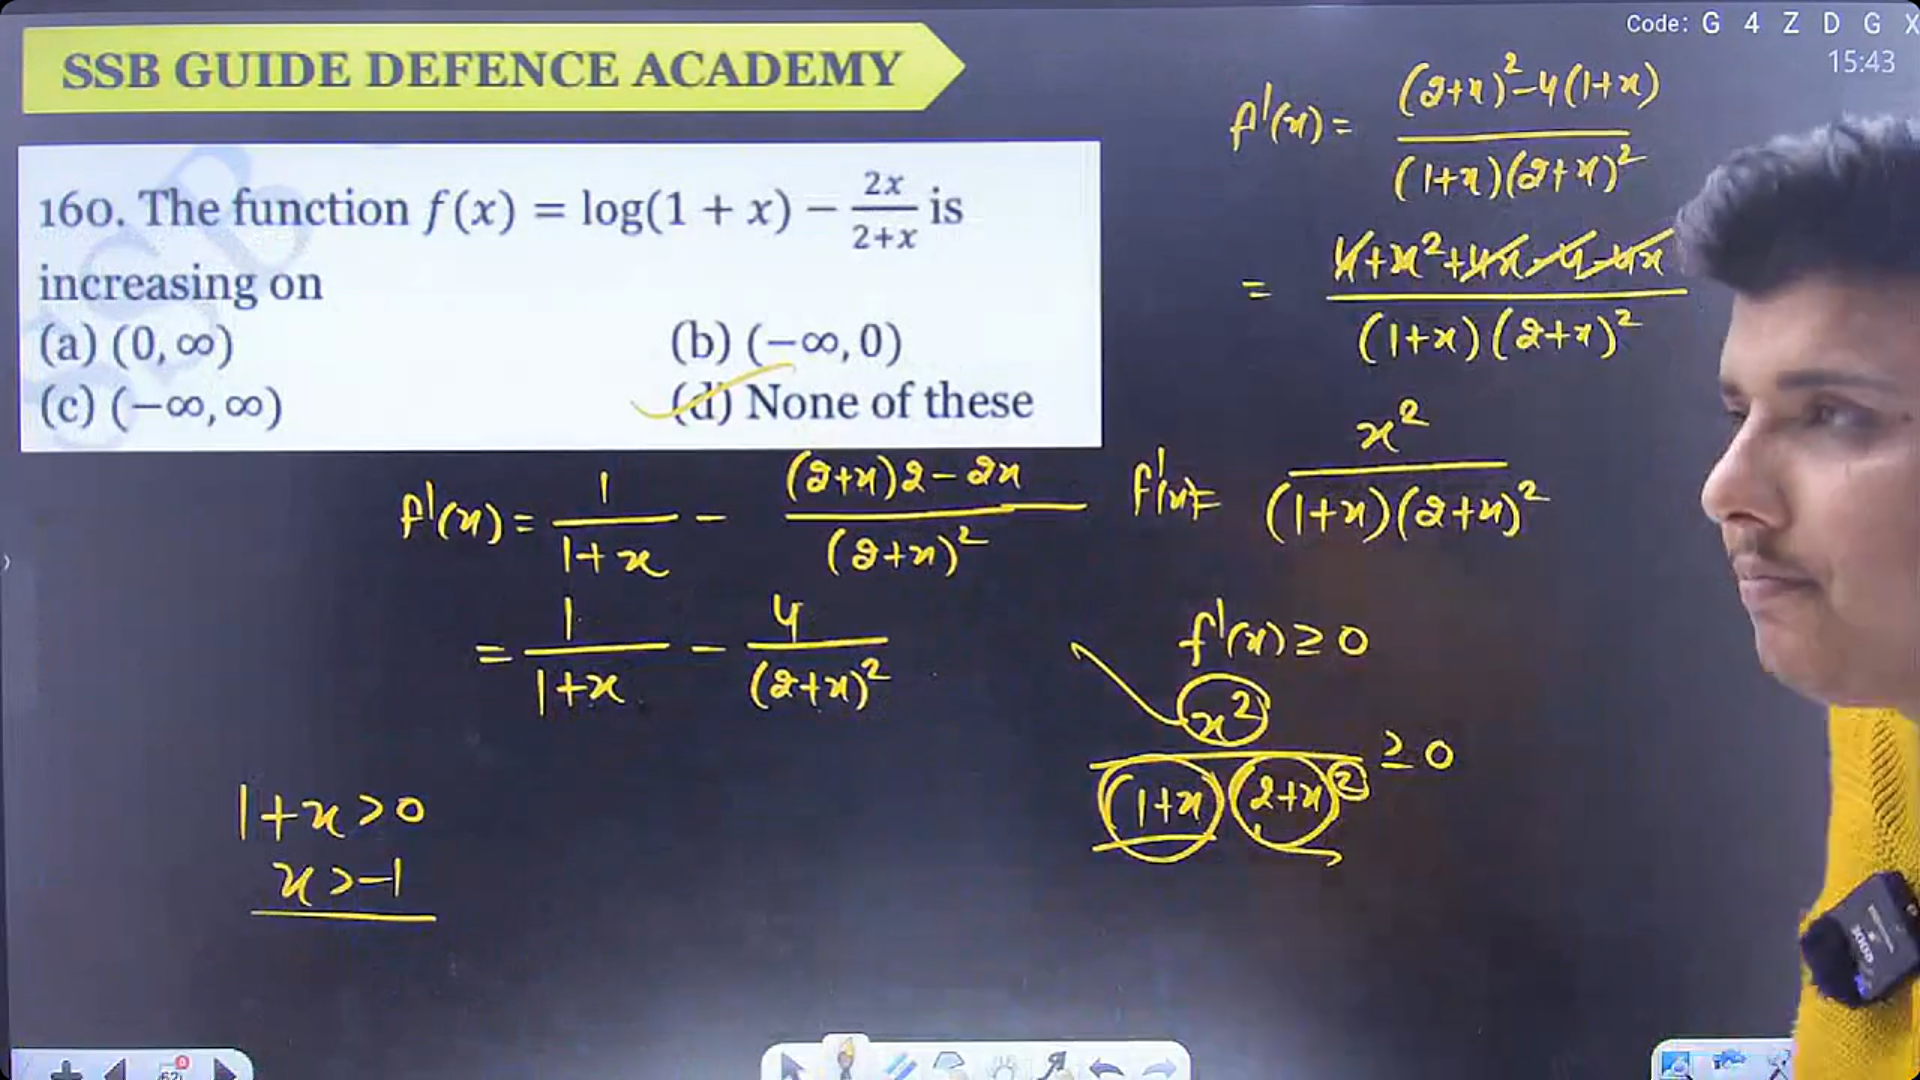 Code: G 4 Z D G X
15:43
SSB GUIDE DEFENCE ACADEMY
160. The function f(x) = log(1 + x) − 2x/2+x is
increasing on
(a) (0, ∞)
(b) (−∞, 0)
(c) (−∞, ∞)
(d) None of these
f'(x) = 1/1+x − (2+x)2−2x/(2+x)²
= 1/1+x − 4/(2+x)²
1+x>0
x>−1
f'(x) = (2+x)²−4(1+x)/(1+x)(2+x)²
= 4+x²+4x−4−4x/(1+x)(2+x)²
f'(x)= x²/(1+x)(2+x)²
f'(x) ≥ 0
x²/(1+x)(2+x)² ≥ 0